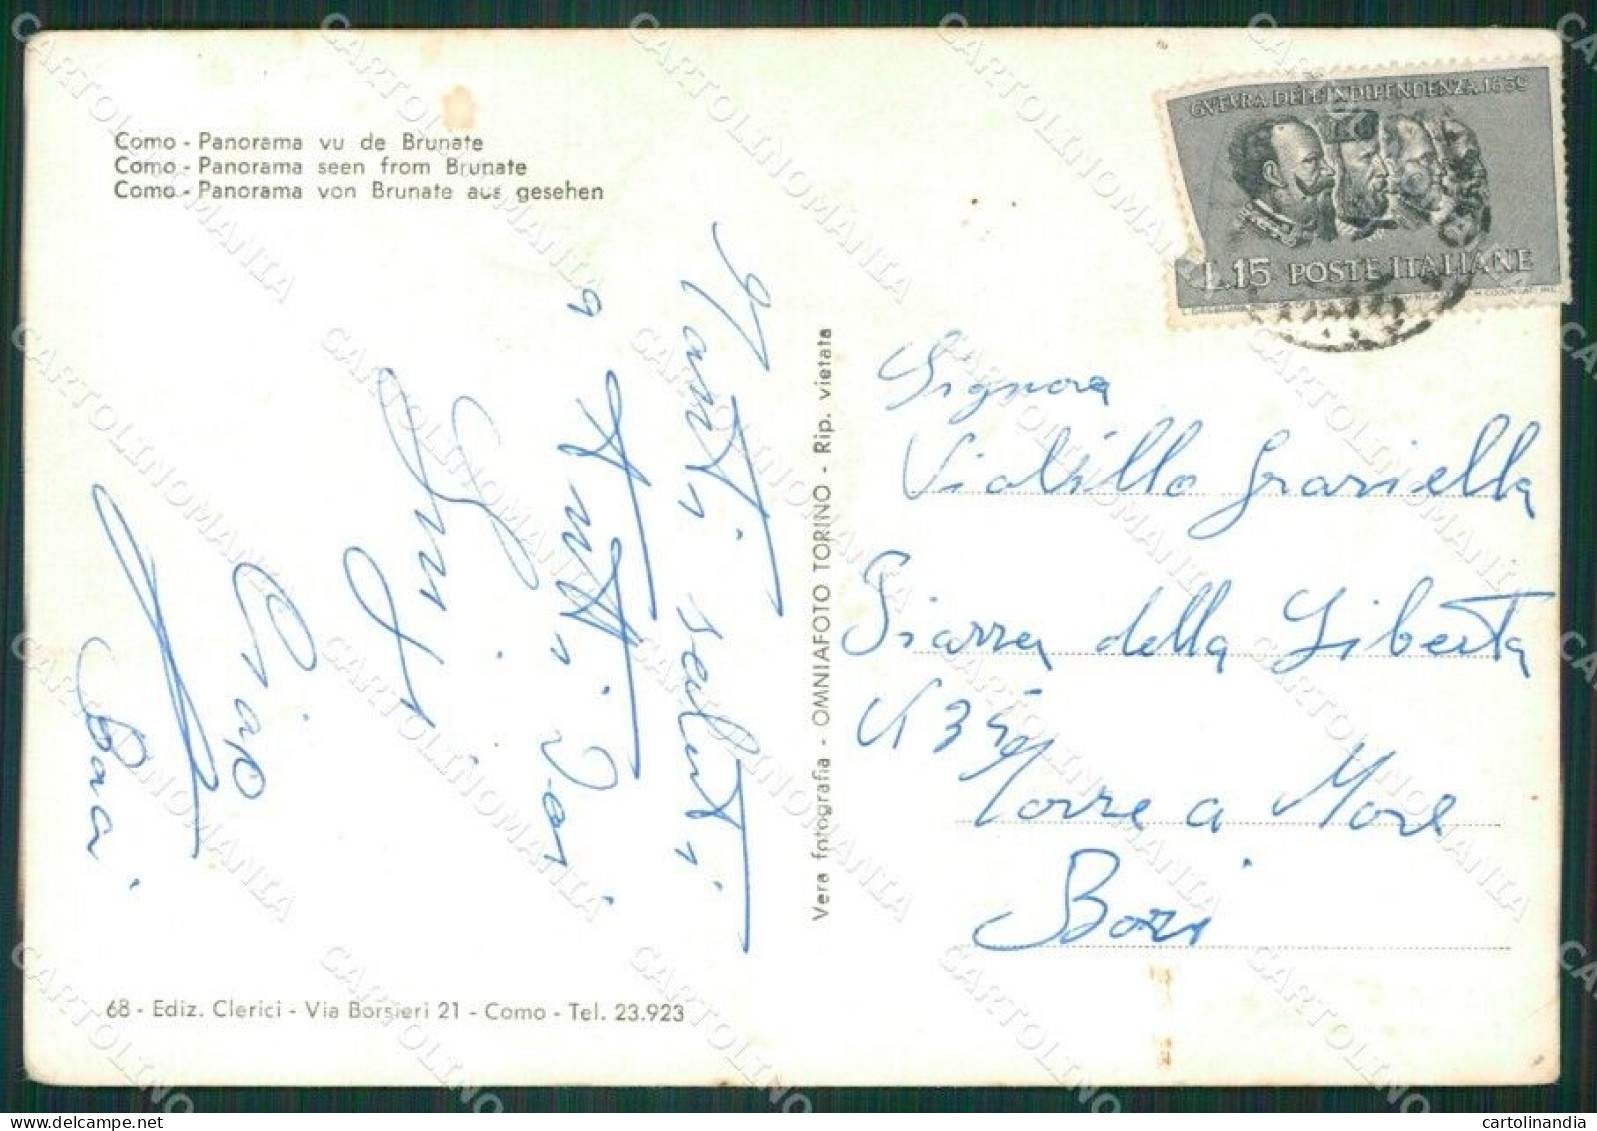 Como - Panorama vu de Brunate
Como - Panorama seen from Brunate
Como - Panorama von Brunate aus gesehen
GVERRA DELL'INDIPENDENZA 1859
L.15 POSTE ITALIANE
Tanti saluti
a tutti voi
Luigi
Ciao
Vera fotografia - OMNIAFOTO TORINO - Rip. vietata
Signora
Violillo Graziella
Piazza della Libertà
N 35
Torre a Mare
Bari
68 - Ediz. Clerici - Via Borsieri 21 - Como - Tel. 23.923
CARTOLINOMANIA
cartolinandia